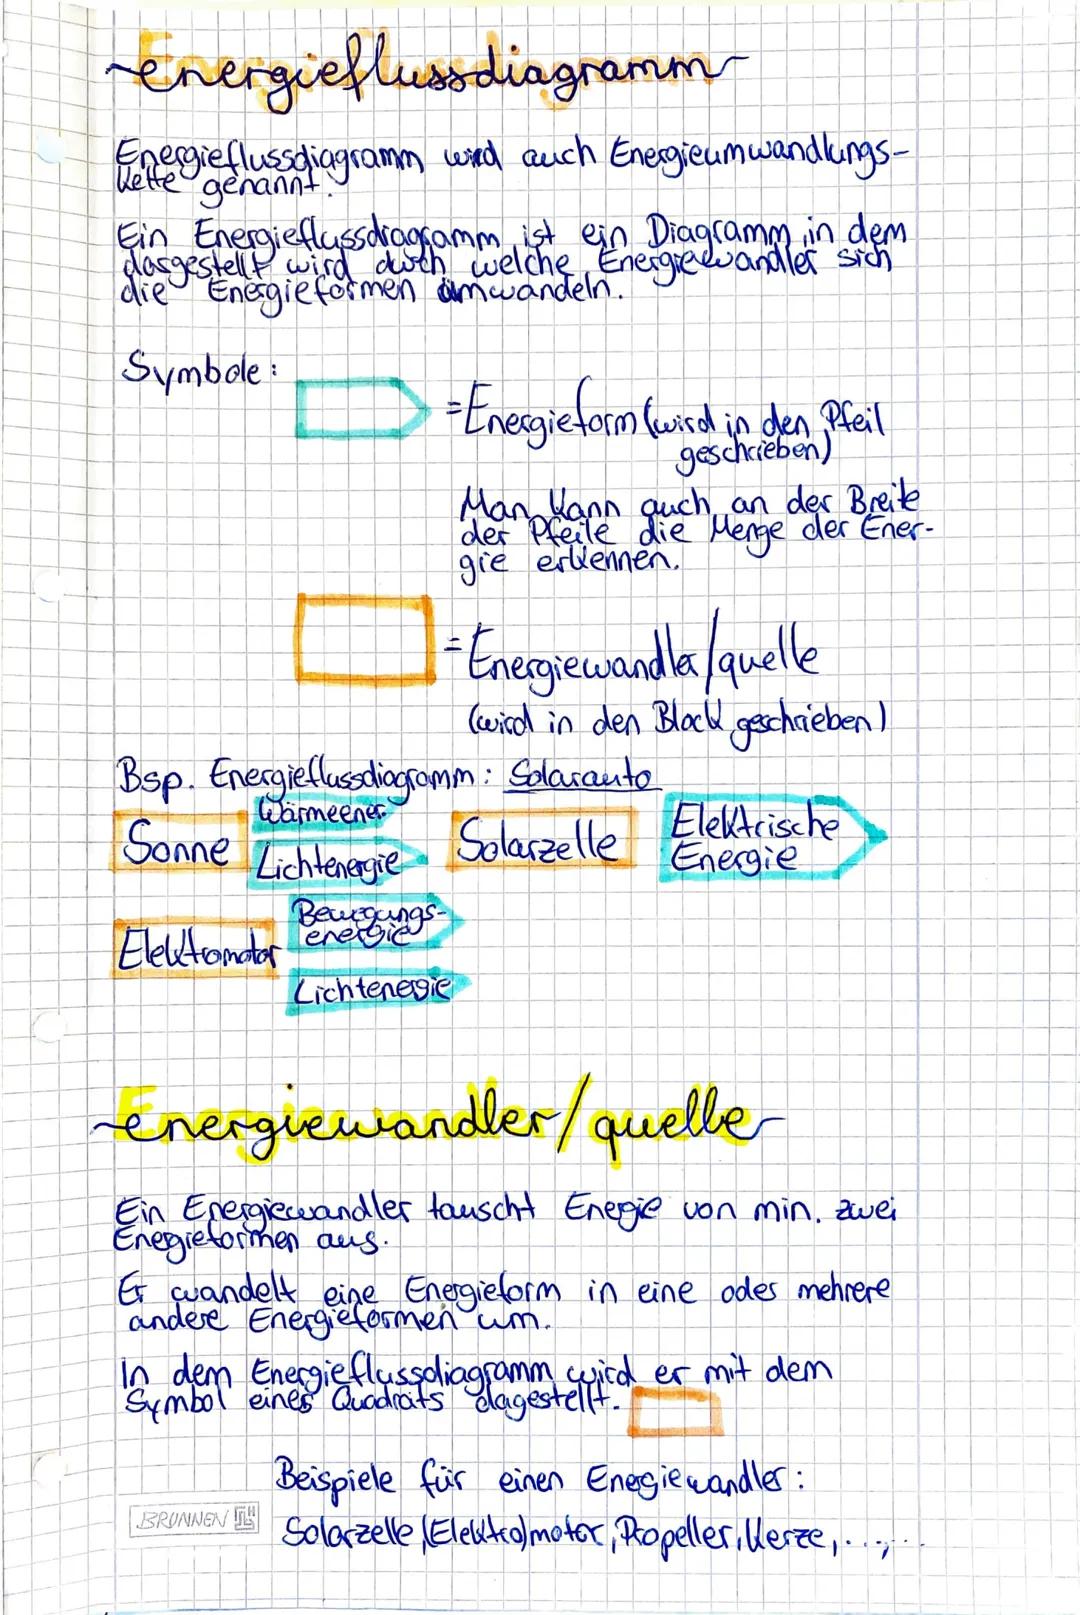 Energieflussdiagramm
Energieflussdiagramm wird auch Energieumwandlungs-
kette genannt.
Ein Energieflussdiagramm ist ein Diagramm, in dem
dargestellt wird durch welche Energiewandler sich
die Energieformen umwandeln.
Symbole:
=Energieform (wird in den Pfeil
geschrieben)
Man kann auch an der Breite
der Pfeile die Menge der Ener-
gie erkennen.
=Energiewandler/quelle
(wird in den Block geschrieben)
Bsp. Energieflussdiagramm: Solarauto
Wärmeener.
Sonne
Lichtenergie
Solarzelle
Elektrische
Energie
Bewegungs-
energie
Elektromotor
Lichtenergie
Energiewandler/quelle
Ein Energiewandler tauscht Energie von min. zwei
Energieformen aus.
Er wandelt eine Energieform in eine oder mehrere
andere Energieformen um.
In dem Energieflussdiagramm wird er mit dem
Symbol eines Quadrats dagestellt.
Beispiele für einen Energiewandler:
BRUNNEN
Solarzelle, (Elektro)motor, Propeller, Kerze, ...,...